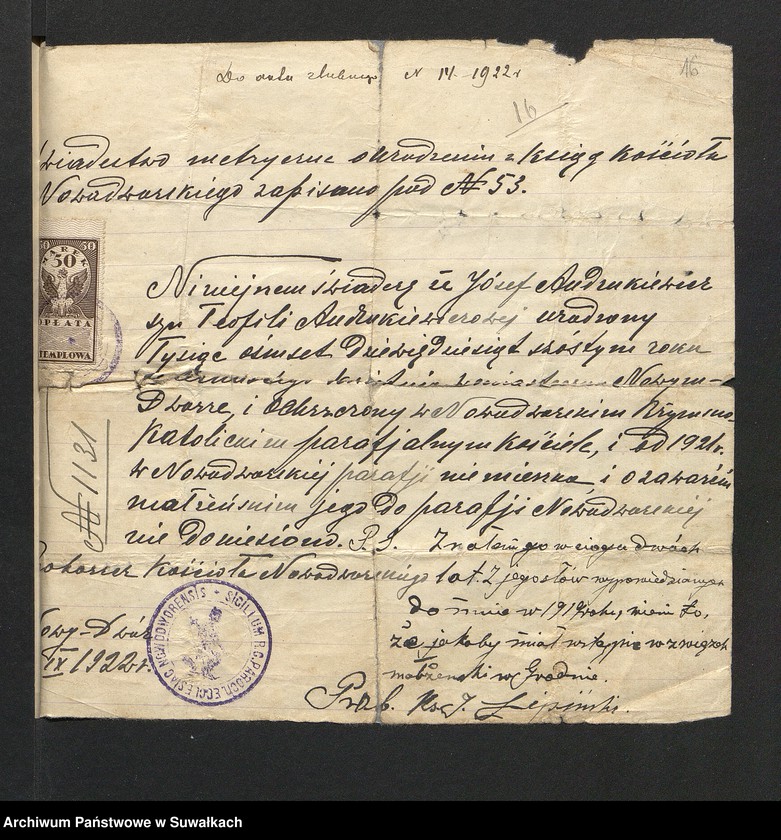 Do aktu ślubnego N 14 - 1922 r
16
16
świadectwo metryczne o urodzeniu z Ksiąg Kościoła
Nowodworskiego zapisano pod № 53.
50 50
MAREK
50
OPŁATA
STEMPLOWA
Niniejszem świadczę że Józef Andrukiewicz
syn Teofili Andrukiewiczowej urodzony
Tysiąc ośmset Dziewiędziesiąt szóstym roku
w miasteczku Nowym-
Dworze, i Ochrzczony w Nowodworskim Rzymsko-
Katolickim parafjalnym Kościele, i od 1921 r.
w Nowodworskiej parafji nie mieszka i o zawarciu
małżeńskim jego do parafji Nowodworskiej
nie Doniesiono. P.S. Znałem go w ciągu dwóch
Kościoła Nowodworskiego lat. Z jego słów wypowiedzianych
do mnie w 1919 roku, wiem to,
że jakoby miał wstąpić w związek
małżeński w Grodnie.
№ 1131
Nowy-Dwór
IX 1922 r.
SIGILLUM R.C. PAROCH. ECCLESIAE NOVIDVORENSIS
Prob. Ks. J. Lipiński.
Archiwum Państwowe w Suwałkach